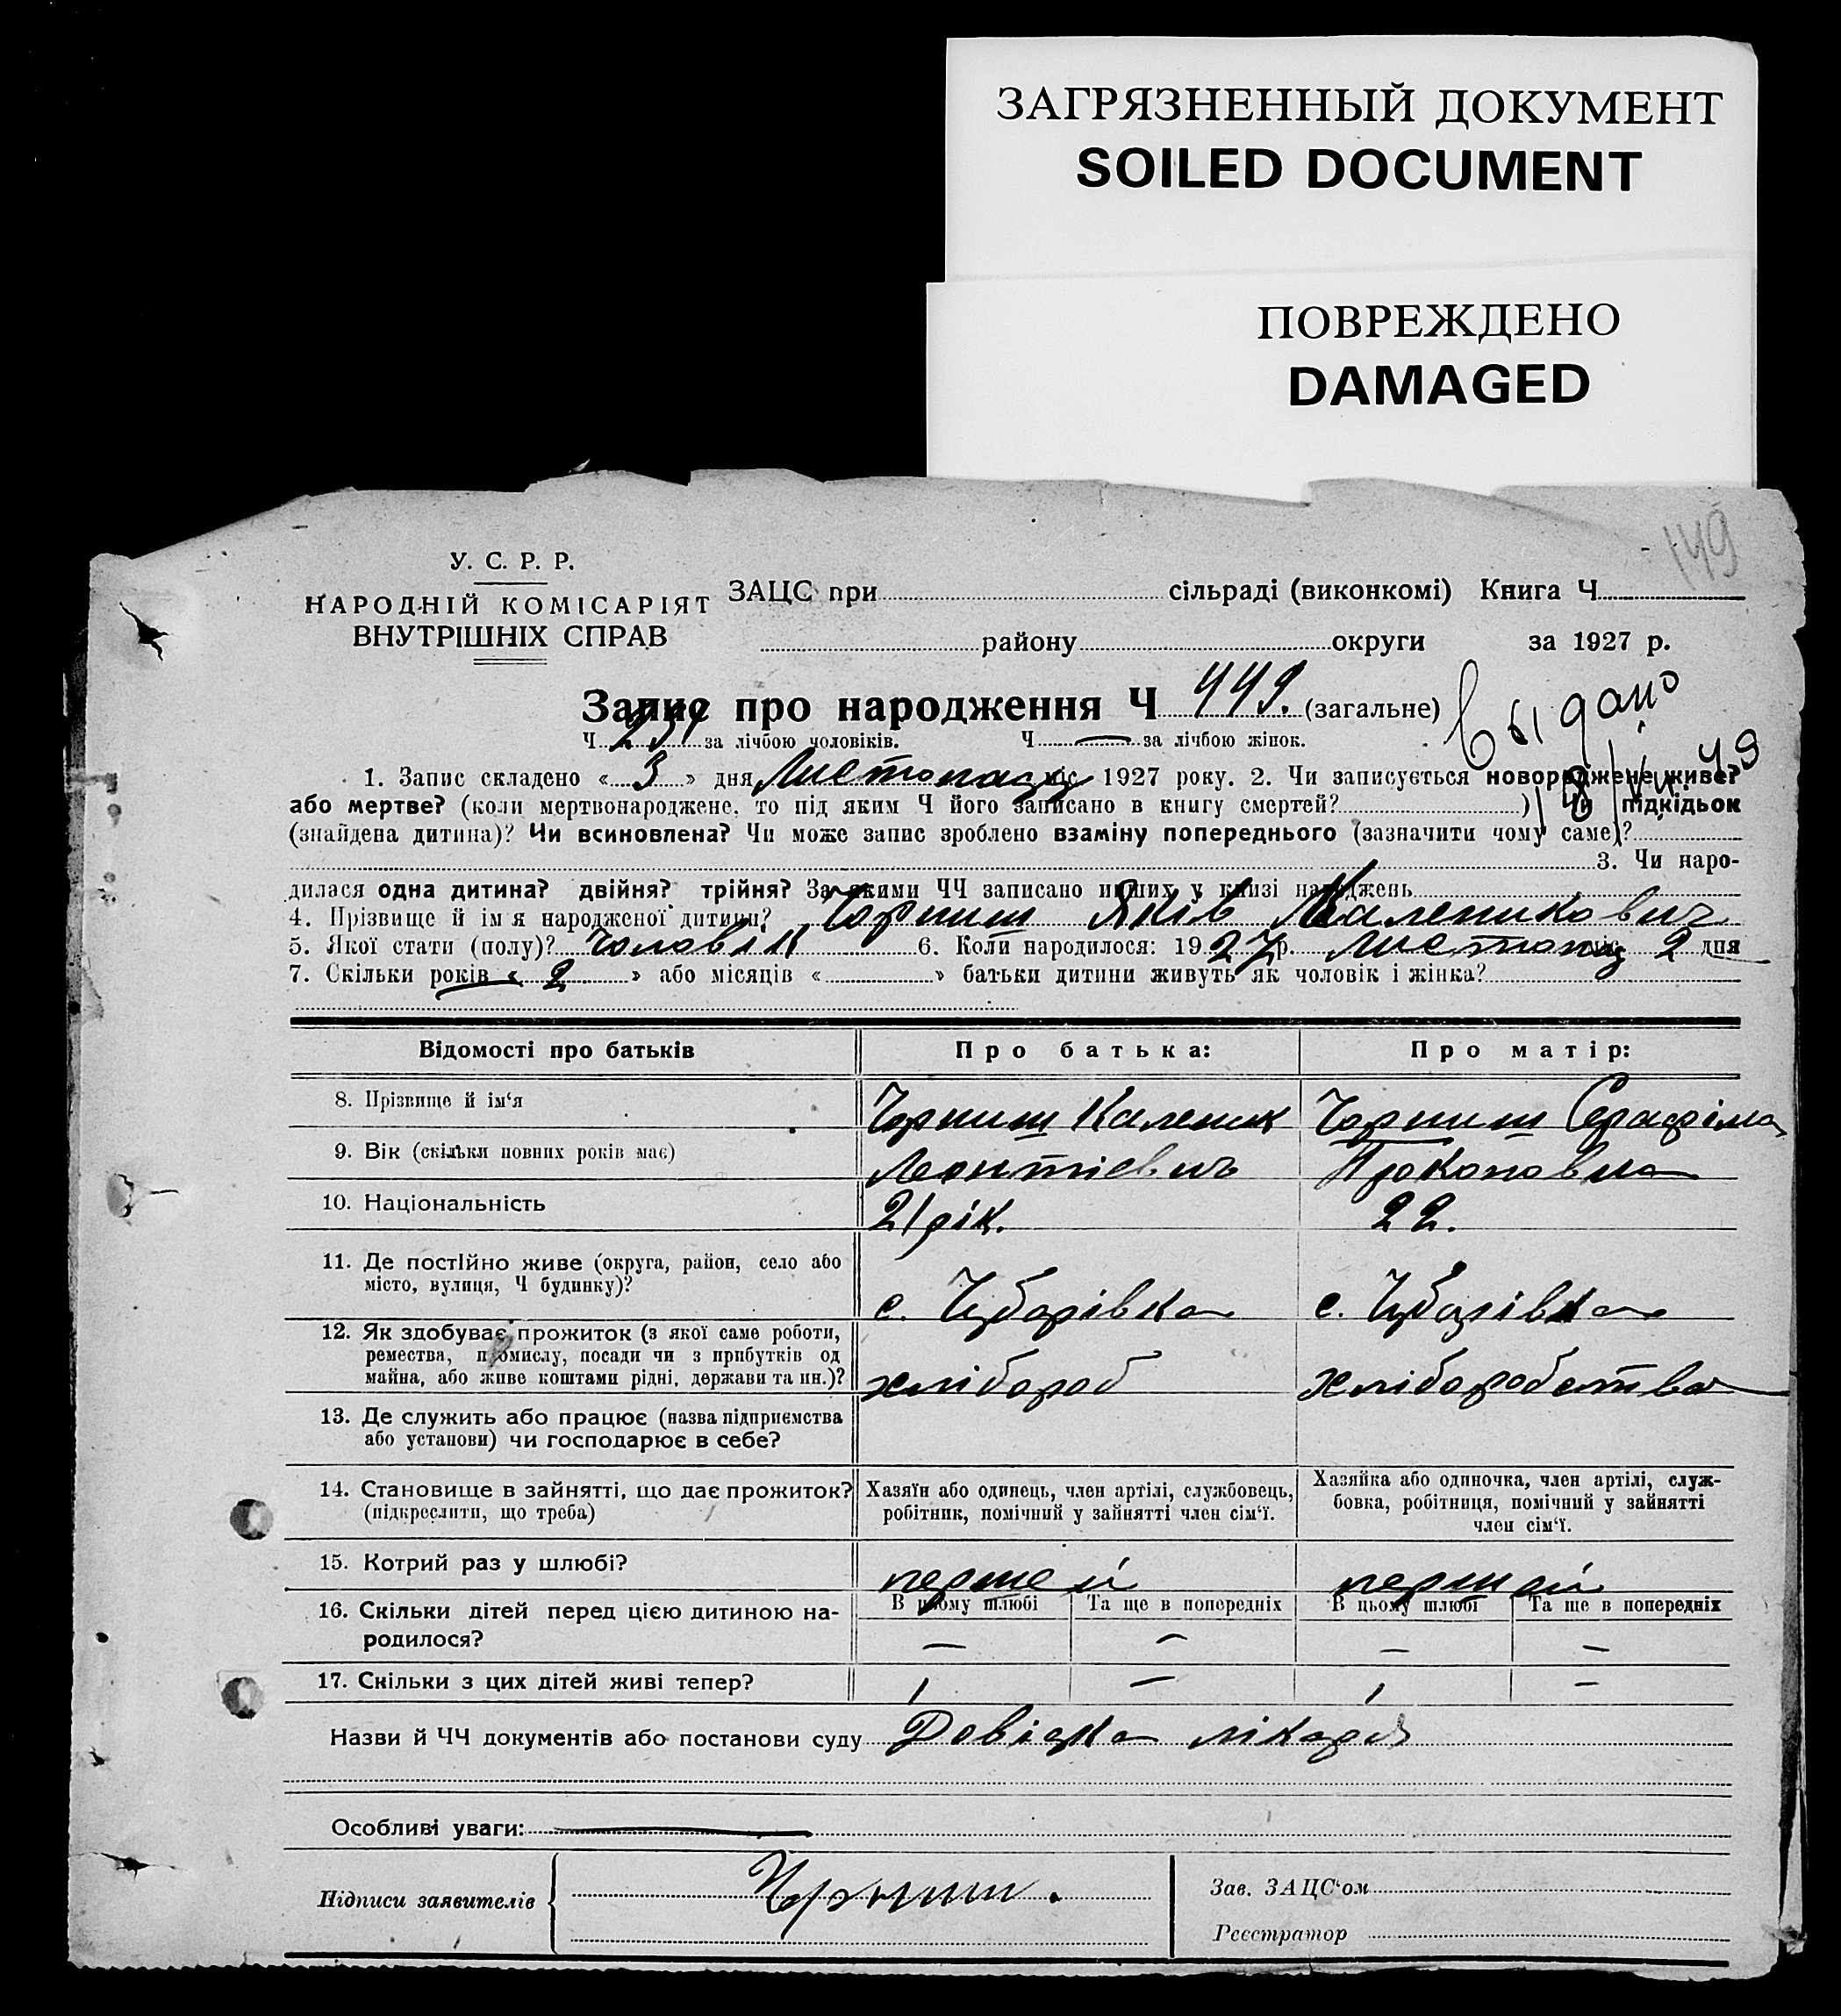 ЗАГРЯЗНЕННЫЙ ДОКУМЕНТ
SOILED DOCUMENT
ПОВРЕЖДЕНО
DAMAGED
149
У. С. Р. Р.
НАРОДНІЙ КОМІСАРІЯТ
ВНУТРІШНІХ СПРАВ
ЗАЦС при сільраді (виконкомі) Книга Ч.
району округи за 1927 р.
Запис про народження Ч 449. (загальне)
Ч. 231 за лічбою чоловіків. Ч. — за лічбою жінок.
Выдано
18/VII 49
1. Запис складено « 3 » дня Листопаду міс. 1927 року. 2. Чи записується новороджене живе?
або мертве? (коли мертвонароджене, то під яким Ч його записано в книгу смертей? ) Чи підкідьок
(знайдена дитина)? Чи всиновлена? Чи може запис зроблено взаміну попереднього (зазначити чому саме)?
3. Чи наро-
дилася одна дитина? двійня? трійня? За якими ЧЧ записано инших у книзі народжень
4. Прізвище й ім'я народженої дитини? Чорниш Яків Каленикович
5. Якої стати (полу)? Чоловік 6. Коли народилося: 1927 р. Листопад міс. 2 дня
7. Скільки років « 2 » або місяців « » батьки дитини живуть як чоловік і жінка?
Відомості про батьків Про батька: Про матір:
8. Прізвище й ім'я Чорниш Каленик Чорниш Серафіма
9. Вік (скільки повних років має) Леонтієвич Прокоповна
10. Національність 21 рік. 22.
11. Де постійно живе (округа, район, село або
місто, вулиця, Ч будинку)? с. Чубарівка с. Чубарівка
12. Як здобуває прожиток (з якої саме роботи,
ремества, промислу, посади чи з прибутків од
майна, або живе коштами рідні, держави та ин.)? хлібороб хліборобства
13. Де служить або працює (назва підприємства
або установи) чи господарює в себе?
14. Становище в зайнятті, що дає прожиток?
(підкреслити, що треба)
Хазяїн або одинець, член артілі, службовець,
робітник, помічний у зайнятті член сім'ї.
Хазяйка або одиночка, член артілі, служ-
бовка, робітниця, помічний у зайнятті
член сім'ї.
15. Котрий раз у шлюбі? перший перший
16. Скільки дітей перед цією дитиною на-
родилося?
В цьому шлюбі Та ще в попередніх В цьому шлюбі Та ще в попередніх
— — — —
17. Скільки з цих дітей живі тепер? 1 — 1 —
Назви й ЧЧ документів або постанови суду Довідка лікаря
Особливі уваги:
Підписи заявителів Чорниш.
Зав. ЗАЦС'ом
Реєстратор